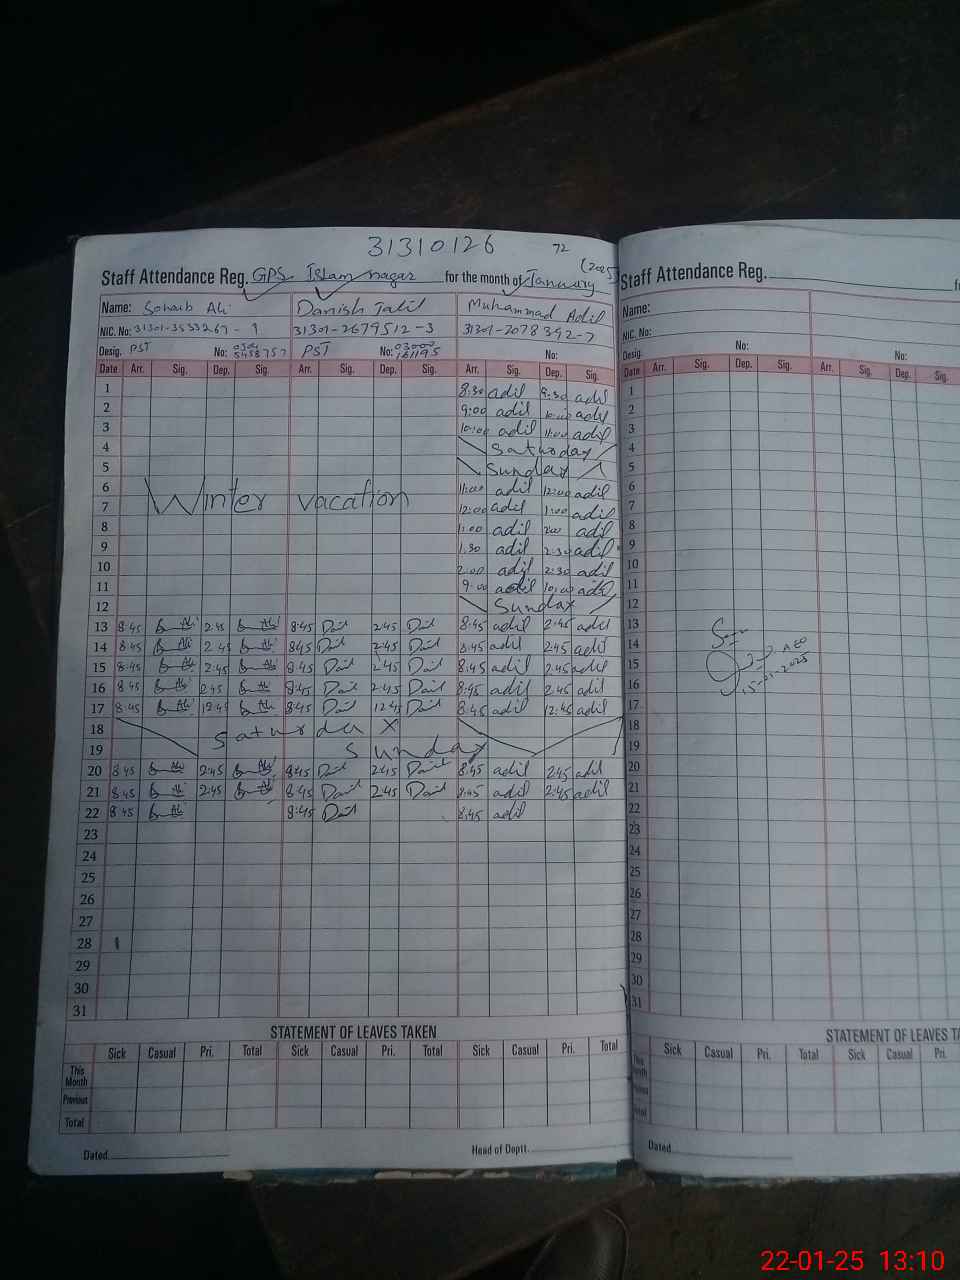 31310126 72
Staff Attendance Reg. GPS Islam nagar for the month of January (2025)
Name: Sohaib Ali Danish Jalil Muhammad Adil
NIC. No: 31301-3533267-1 31301-2679512-3 31301-2078392-7
Desig. PST No: PST No: No:
Date Arr. Sig. Dep. Sig. Arr. Sig. Dep. Sig. Arr. Sig. Dep. Sig.
1 8:30 adil 9:30 adil
2 9:00 adil 10:00 adil
3 10:00 adil 11:00 adil
4 Saturday
5 Sunday
6 11:00 adil 12:00 adil
7 Winter vacation 12:00 adil 1:00 adil
8 1:00 adil 2:00 adil
9 1:30 adil 2:30 adil
10 2:00 adil 2:30 adil
11 9:00 adil 10:00 adil
12 Sunday
13 8:45 2:45 8:45 2:45 8:45 adil 2:45 adil
14 8:45 2:45 8:45 2:45 8:45 adil 2:45 adil
15 8:45 2:45 8:45 2:45 8:45 adil 2:45 adil
16 8:45 2:45 8:45 2:45 8:45 adil 2:45 adil
17 8:45 12:45 8:45 12:45 8:45 adil 12:45 adil
18 Saturday
19 Sunday
20 8:45 2:45 8:45 2:45 8:45 adil 2:45 adil
21 8:45 2:45 8:45 2:45 8:45 adil 2:45 adil
22 8:45 8:45 8:45 adil
23
24
25
26
27
28
29
30
31
STATEMENT OF LEAVES TAKEN
Sick Casual Pri. Total Sick Casual Pri. Total Sick Casual Pri. Total
This Month
Previous
Total
Dated Head of Deptt.
Staff Attendance Reg.
Name:
NIC. No:
Desig. No: No:
Date Arr. Sig. Dep. Sig. Arr. Sig. Dep. Sig.
1
2
3
4
5
6
7
8
9
10
11
12
13
14 AEO
15 15-01-2025
16
17
18
19
20
21
22
23
24
25
26
27
28
29
30
31
STATEMENT OF LEAVES TA
Sick Casual Pri. Total Sick Casual Pri.
Dated
22-01-25 13:10